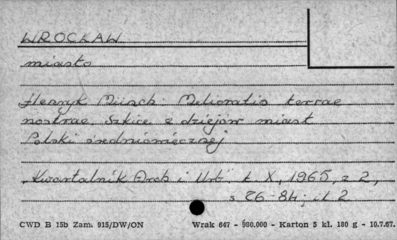 WROCŁAW
miasto
Henryk Münch: Melioratio terrae
nostrae. Szkice z dziejów miast
Polski średniowiecznej
"Kwartalnik Arch i Urb". t. X, 1965, z 2,
s 26-84; il 2
CWD B 15b Zam. 915/DW/ON Wrak 647 - 900.000 - Karton 5 kl. 180 g - 10.7.67.